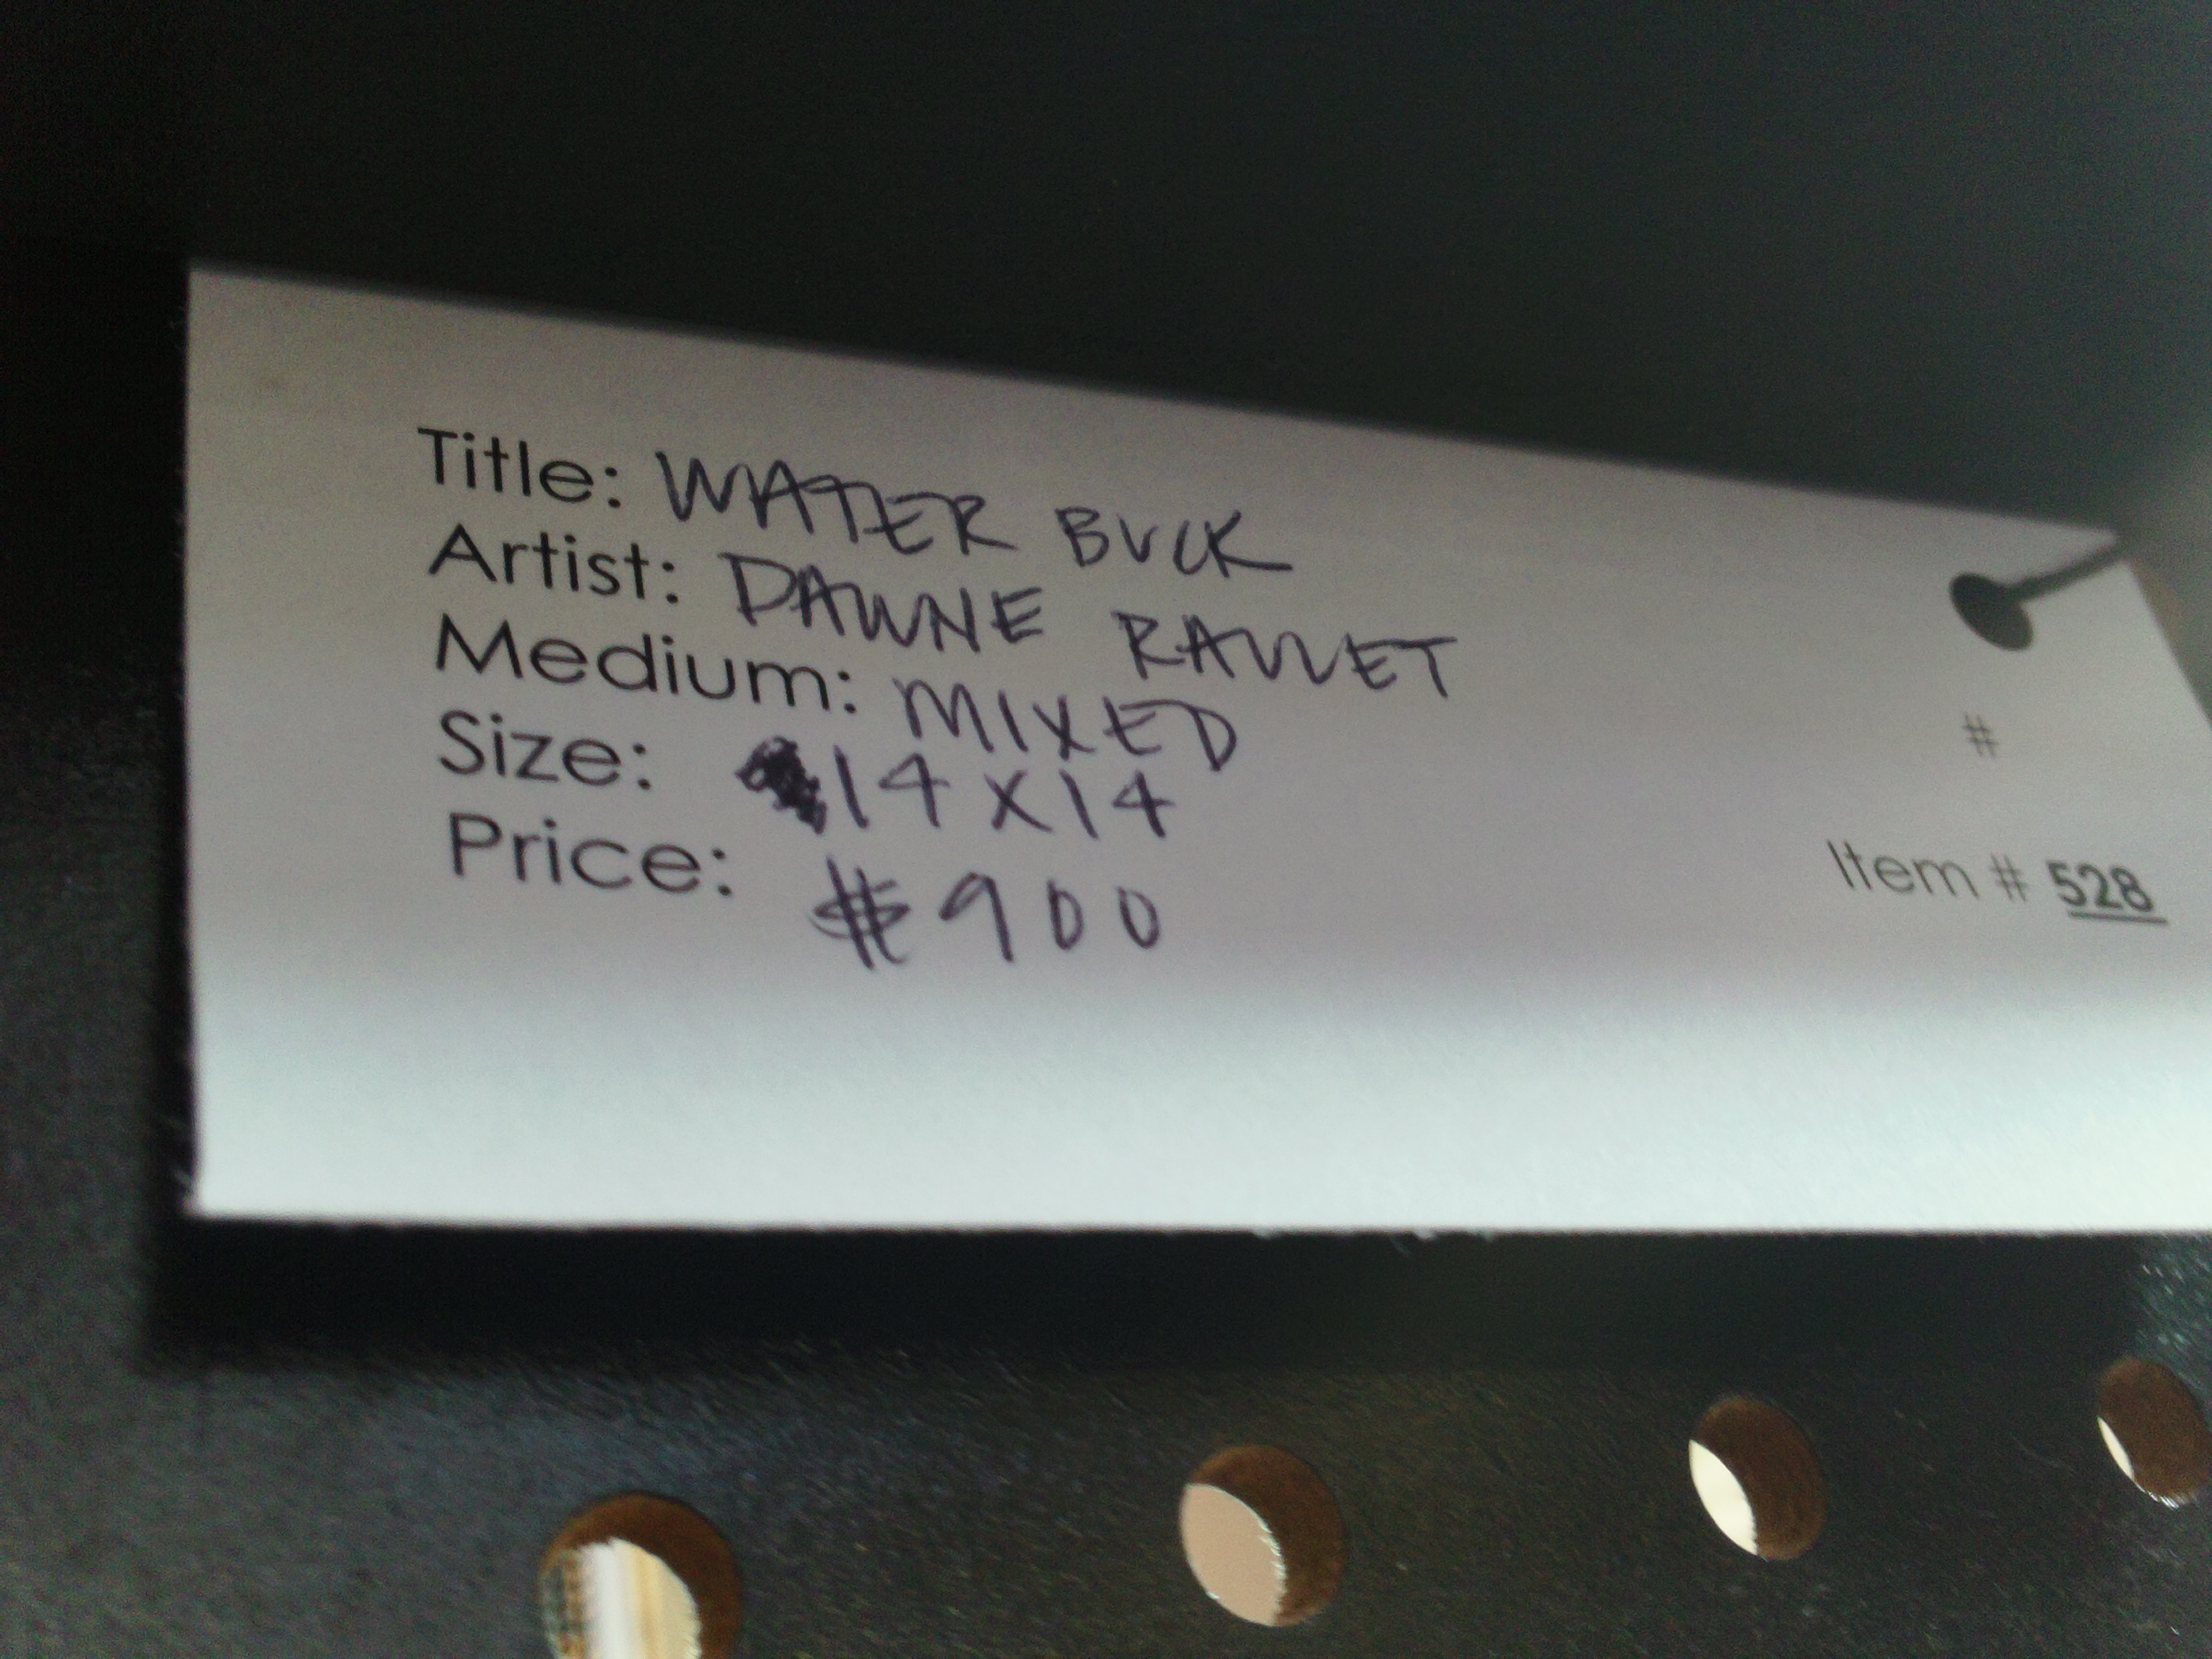 Title: WATER BUCK
Artist: DAWNE RAVVET
Medium: MIXED
Size: 14 X 14
Price: $900
#
Item # 528